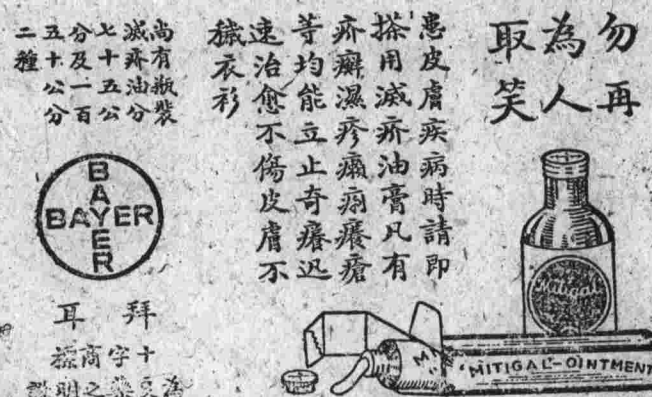 勿再
為人
取笑
患皮膚疾病時請即
搽用滅疥油膏凡有
疥癬濕疹癩痢癢瘡
等均能立止奇癢迅
速治愈不傷皮膚不
穢衣衫
Mitigal
"MITIGAL"-OINTMENT
尚有瓶裝
滅疥油分
七十五公
分及一百
五十公分
二種
BAYER
BAYER
拜耳
十字商標
為良藥之明證